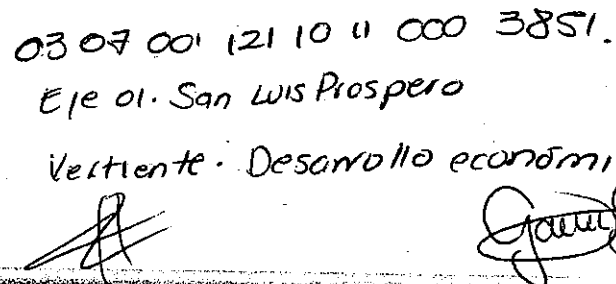 03 07 001 121 10 11 000 3851.
Eje 01. San Luis Prospero
Vertiente. Desarrollo económi